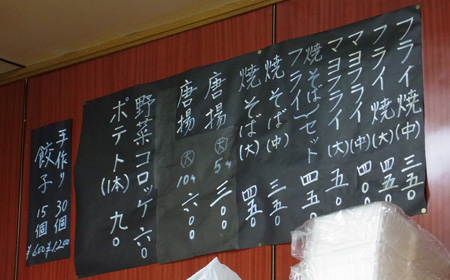 フライ焼(中) 三五〇
フライ焼(大) 四五〇
マヨフライ(中) 四〇〇
マヨフライ(大) 五〇〇
フライ焼そばセット 五五〇
焼そば(中) 三五〇
焼そば(大) 四五〇
唐揚 大 5ケ 三〇〇
唐揚 大 10ケ 六〇〇
野菜コロッケ 六〇
ポテト(1本) 九〇
手作り餃子
30個 ¥1200
15個 ¥600